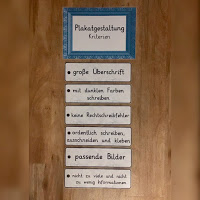 Plakatgestaltung
Kriterien
• große Überschrift
• mit dunklen Farben
schreiben
• keine Rechtschreibfehler
• ordentlich schreiben,
ausschneiden und kleben
• passende Bilder
• nicht zu viele und nicht
zu wenig Informationen